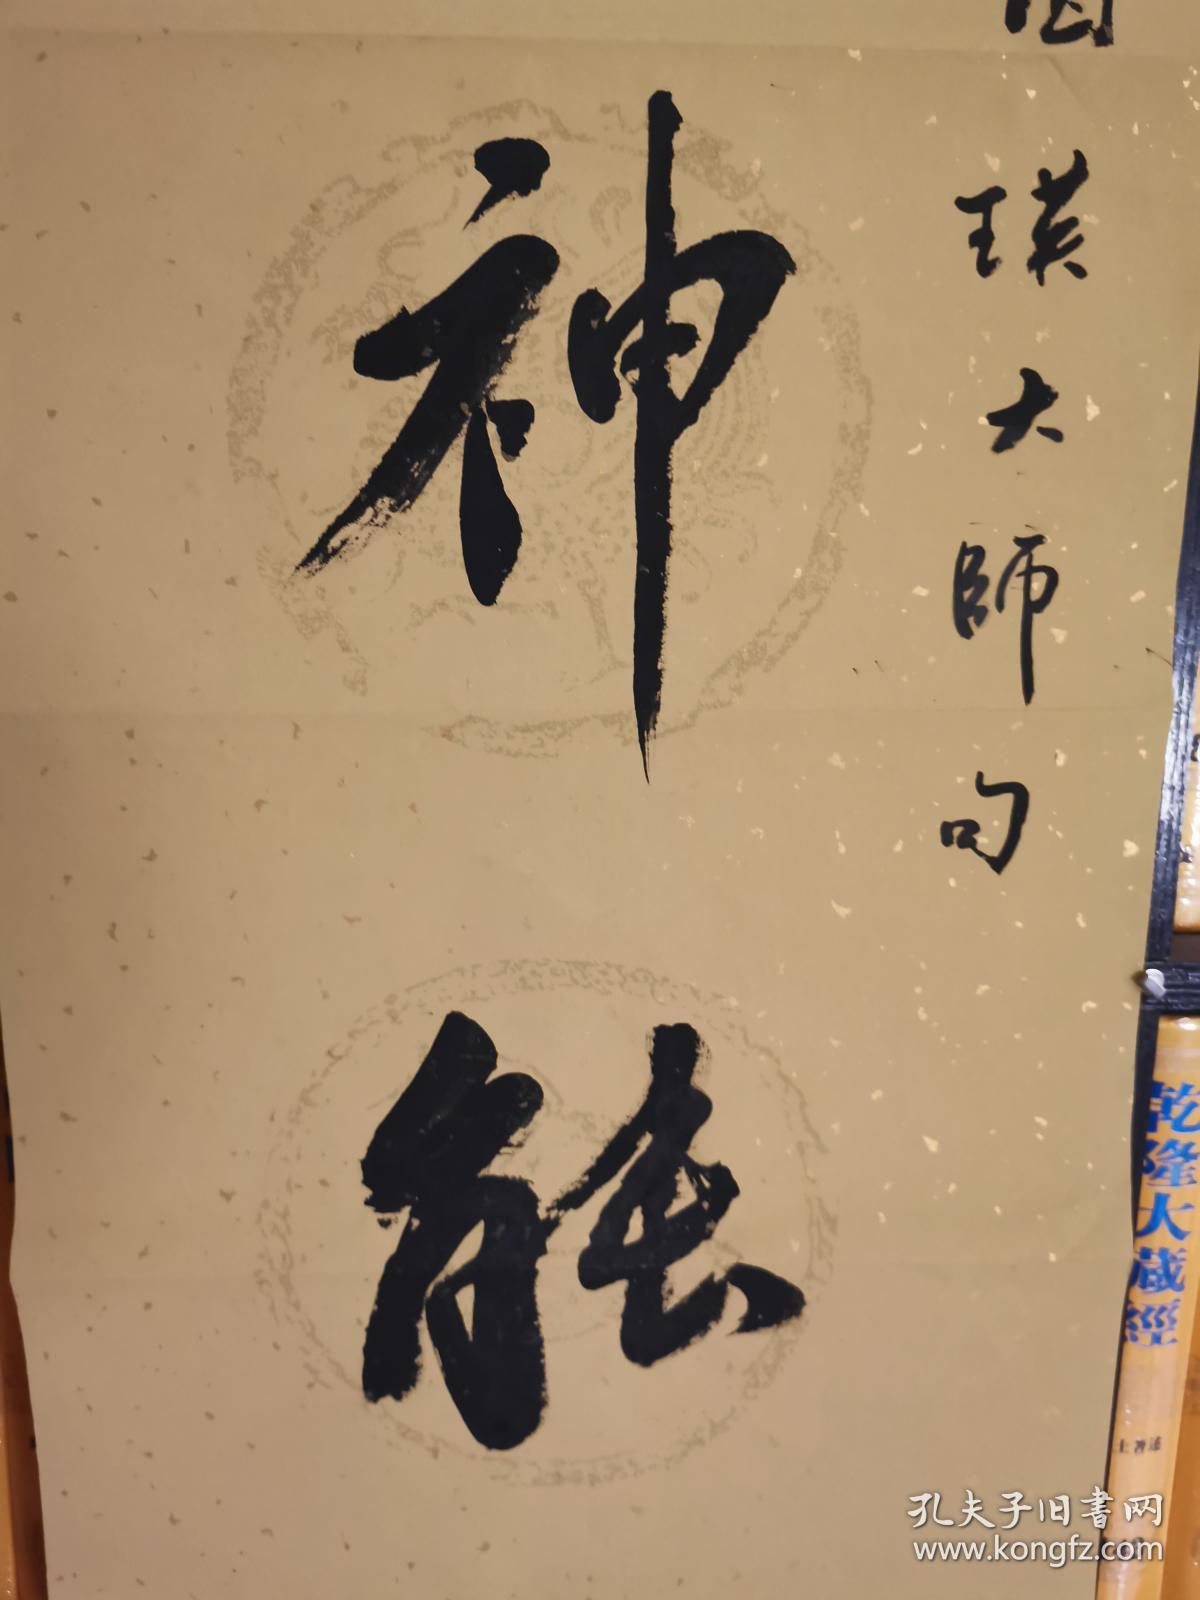 璞大師句
神能
乾隆大藏經
孔夫子旧書网
www.kongfz.com